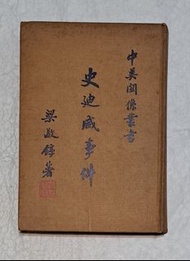 中美關係叢書
史迪威事件
梁敬錞著